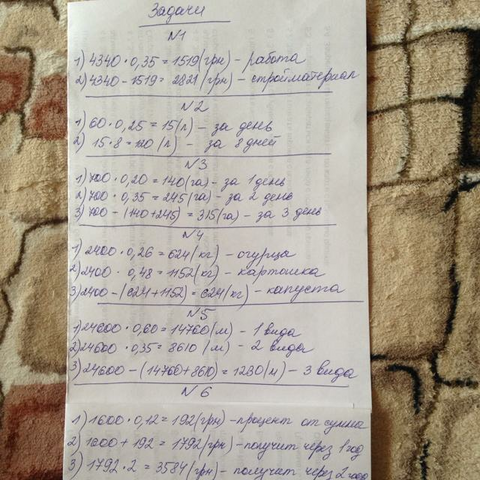 Задачи
N1
1) 4340 · 0,35 = 1519 (грн) - работа
2) 4340 - 1519 = 2821 (грн) - стройматериал
N2
1) 60 · 0,25 = 15 (л) - за день
2) 15 · 8 = 120 (л) - за 8 дней
N3
1) 700 · 0,20 = 140 (га) - за 1 день
2) 700 · 0,35 = 245 (га) - за 2 день
3) 700 - (140 + 245) = 315 (га) - за 3 день
N4
1) 2400 · 0,26 = 624 (кг) - огурца
2) 2400 · 0,48 = 1152 (кг) - картошка
3) 2400 - (624 + 1152) = 624 (кг) - капуста
N5
1) 24600 · 0,60 = 14760 (м) - 1 вида
2) 24600 · 0,35 = 8610 (м) - 2 вида
3) 24600 - (14760 + 8610) = 1230 (м) - 3 вида
N6
1) 1600 · 0,12 = 192 (грн) - процент от суммы
2) 1600 + 192 = 1792 (грн) - получит через 1 год
3) 1792 · 2 = 3584 (грн) - получит через 2 года